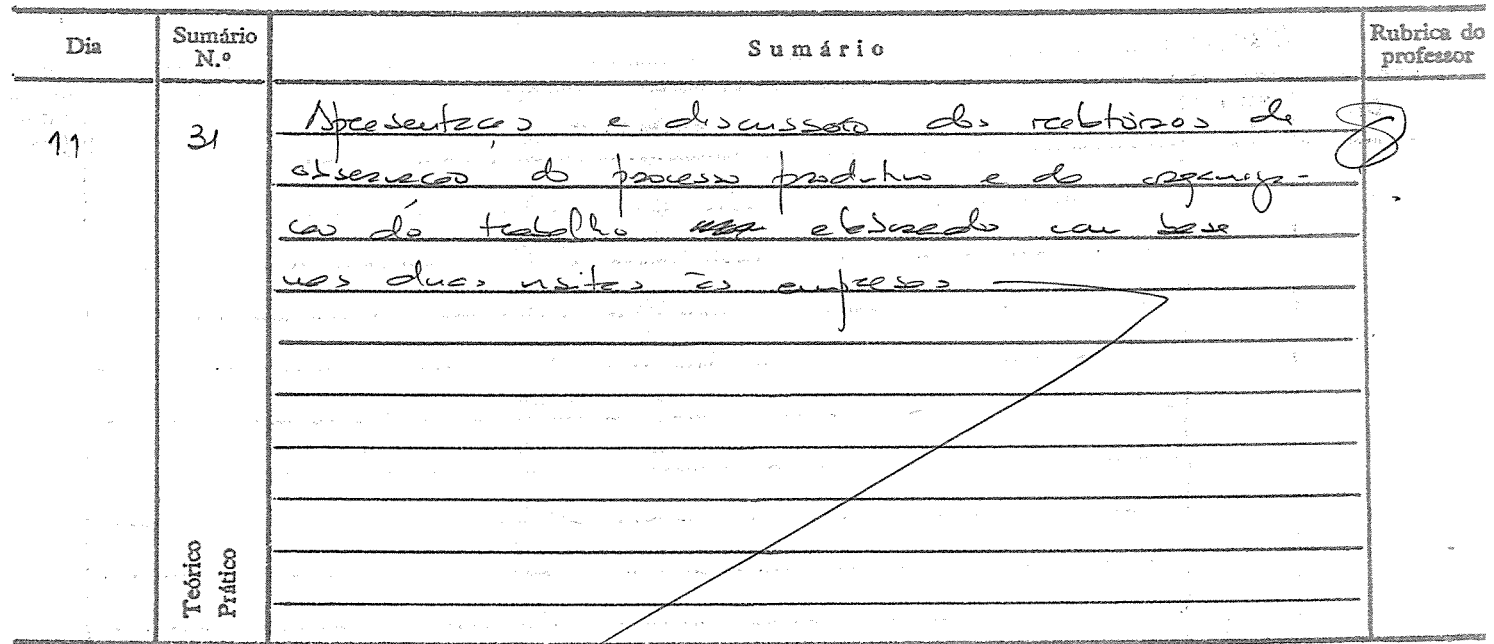 Dia Sumário N.º Sumário Rubrica do professor
11 31 Apresentação e discussão dos relatórios de
observação do processo produtivo e da organiza-
ção do trabalho elaborado com base
nas duas visitas às empresas
Teórico
Prático